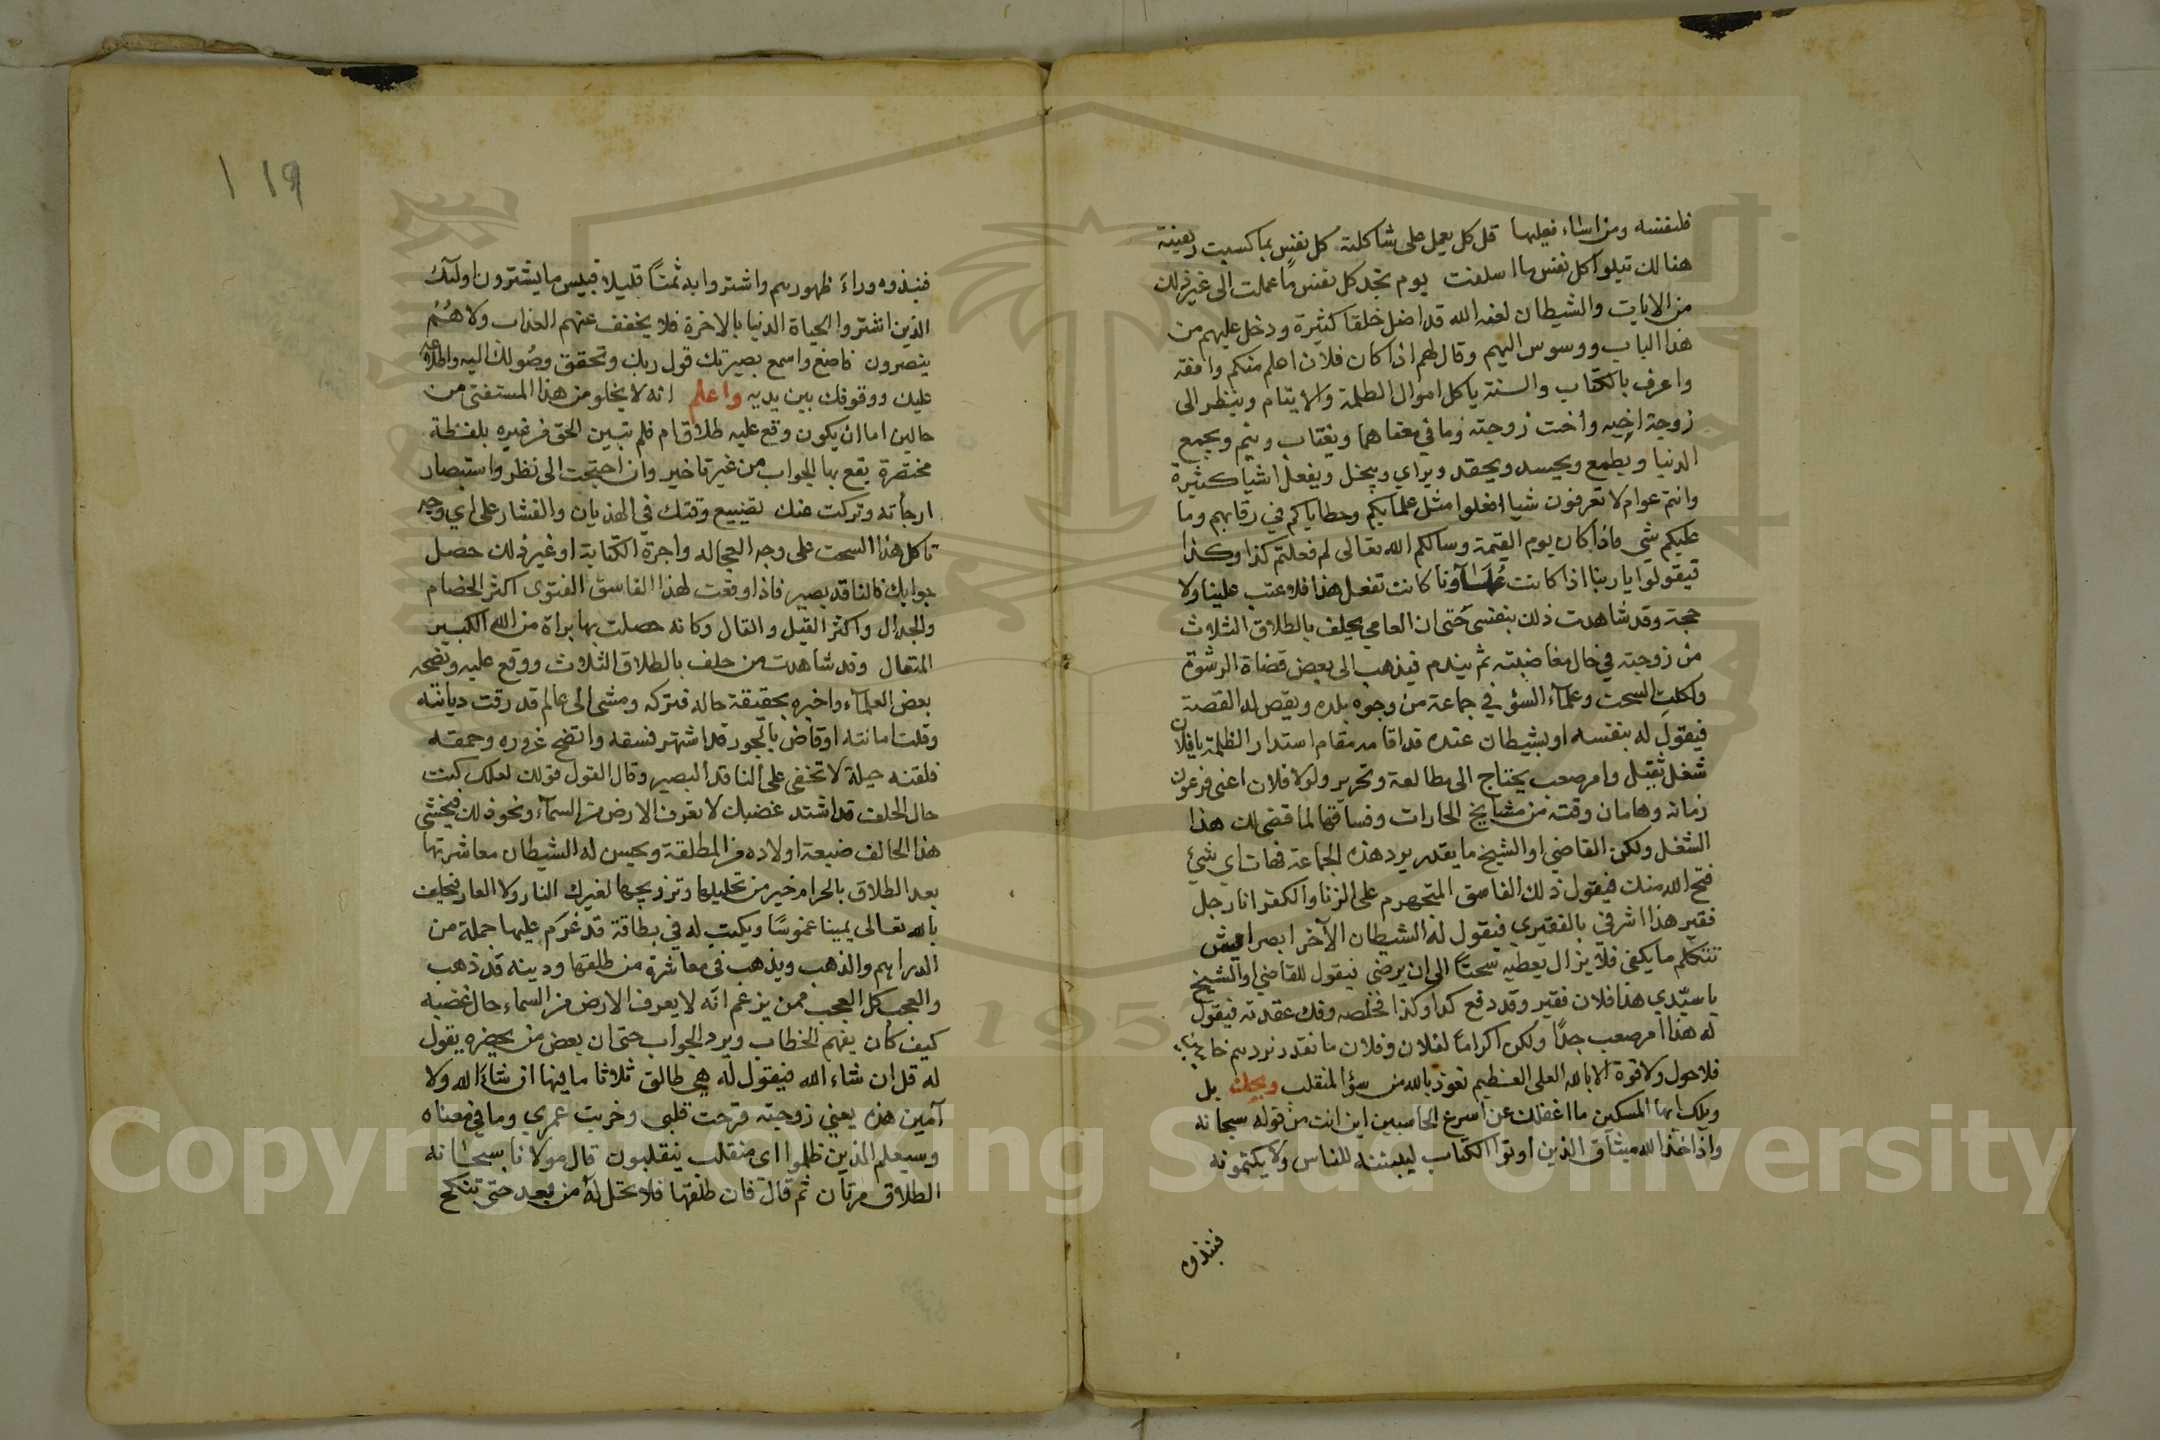 فلنفسه ومن اساء فعليها قل كل يعمل على شاكلته كل نفس بما كسبت رهينة
هنالك تبلوا كل نفس ما اسلفت يوم تجد كل نفس ما عملت الى غير ذلك
من الايات والشيطان لعنه الله قد اضل خلقا كثيرة ودخل عليهم من
هذا الباب ووسوس اليهم وقال لهم اذا كان فلان اعلم منكم وافقه
واعرف بالكتاب والسنة ياكل اموال الظلمة والايتام وينظر الى
زوجة اخيه واخت زوجته وما في معناهما ويغتاب وينم ويجمع
الدنيا ويطمع ويحسد ويحقد ويراي ويبخل ويفعل اشيا كثيرة
وانتم عوام لا تعرفون شيا افعلوا مثل علمايكم وخطاياكم في رقابهم وما
عليكم شي فاذا كان يوم القيمة وسالكم الله تعالى لم فعلتم كذا وكذا
فيقولوا يا ربنا اذا كانت علماونا كانت تفعل هذا فلا عتب علينا ولا
حجة وقد شاهدت ذلك بنفسي حتى ان العامي يحلف بالطلاق الثلاث
من زوجته في حال مغاضبته ثم يندم فيذهب الى بعض قضاة الرشوة
واكلت السحت وعلماء السؤ في جماعة من وجوه بلده ويقص له القصة
فيقول له بنفسه او بشيطان عنده قد اقامه مقام استدار الظلمة يا فلان
شغل ثقيل وامر صعب يحتاج الى مطالعة وتحرير ولولا فلان اعنى فرعون
زمانه وهامان وقته من مشايخ الحارات وفساقها لما قضى لك هذا
الشغل ولكن القاضي او الشيخ ما يقدر يرد هذه الجماعة فهات اي شئ
فتح الله منك فيقول ذلك الفاسق المتجهرم على الزنا والكفر انا رجل
فقير هذا اشرفي بالفقيري فيقول له الشيطان الآخر ابصر ايش
تتكلم ما يكفى فلا يزال يعطيه سحتا الى ان يرضى فيقول للقاضي او الشيخ
يا سيدي هذا فلان فقير وقد دفع كدا وكذا فخلصه وفك عقدته فيقول
له هذا امر صعب جدا ولكن اكراما لفلان وفلان ما نقدر نردهم خايبين
فلا حول ولا قوة الا بالله العلى العظيم نعوذ بالله من سؤ المنقلب ويحك بل
ويلك ايها المسكين ما اغفلك عن اسرع الحاسبين اين انت من قوله سبحانه
واذ اخذ الله ميثاق الذين اوتوا الكتاب ليبيننه للناس ولا يكتمونه
فنبذوه
١١٩
فنبذوه وراء ظهورهم واشتروا به ثمنا قليلا فبيس ما يشترون اوليك
الذين اشتروا الحياة الدنيا بالاخرة فلا يخفف عنهم العذاب ولا هم
ينصرون فاصغ واسمع بصيرتك قول ربك وتحقق وصولك اليه واطلاعه
عليك ووقوفك بين يديه واعلم انه لا يخلو من هذا المستفتى من
حالين اما ان يكون وقع عليه طلاق ام فلم تبين الحق من غيره بلفظة
مختصرة يقع بها الجواب من غير تاخير وان احتجت الى نظر واستبصار
ارجأته وتركت عنك تضييع وقتك في الهذيان والفشار على اي وجه
تاكل هذا السحت على وجه العجاله واجرة الكتابة او غير ذلك حصل
جوابك فالناقد بصير فاذا وقعت لهذا الفاسق الفتوى اكثر الخصام
والجدال واكثر القيل والقال وكانه حصلت بها براة من الله الكبير
المتعال وقد شاهدت من حلف بالطلاق الثلاث ووقع عليه ونصحه
بعض العلماء واخبره بحقيقة حاله فتركه ومشى الى عالم قد رقت ديانته
وقلت امانته او قاض بالجور قد اشتهر فسقه واتضح غروره وحمقه
فلقنه حيلة لا تخفى على الناقد البصير وقال القول قولك لعلك كنت
حال الحلف قد اشتد غضبك لا تعرف الارض من السماء ونحو ذلك فيخشى
هذا الحالف ضيعة اولاده من المطلقة ويحسن له الشيطان معاشرتها
بعد الطلاق بالحرام خير من تحليلها وتزويجها لغيرك النار ولا العار فيحلف
بالله تعالى يمينا غموسا ويكتب له في بطاقة قد غرم عليها جملة من
الدراهم والذهب ويذهب في معاشرة من طلقها ودينه قد ذهب
والعجب كل العجب ممن يزعم انه لا يعرف الارض من السماء حال غضبه
كيف كان يفهم الخطاب ويرد الجواب حتى ان بعض من يحضره يقول
له قل ان شاء الله فيقول له هي طالق ثلاثا ما فيها ان شاء الله ولا
آمين هذه يعني زوجته قرحت قلبي وخربت عمري وما في معناه
وسيعلم الذين ظلموا اى منقلب ينقلبون قال مولانا سبحانه
الطلاق مرتان ثم قال فان طلقها فلا تحل له من بعد حتى تنكح
Copyright © King Saud University
195